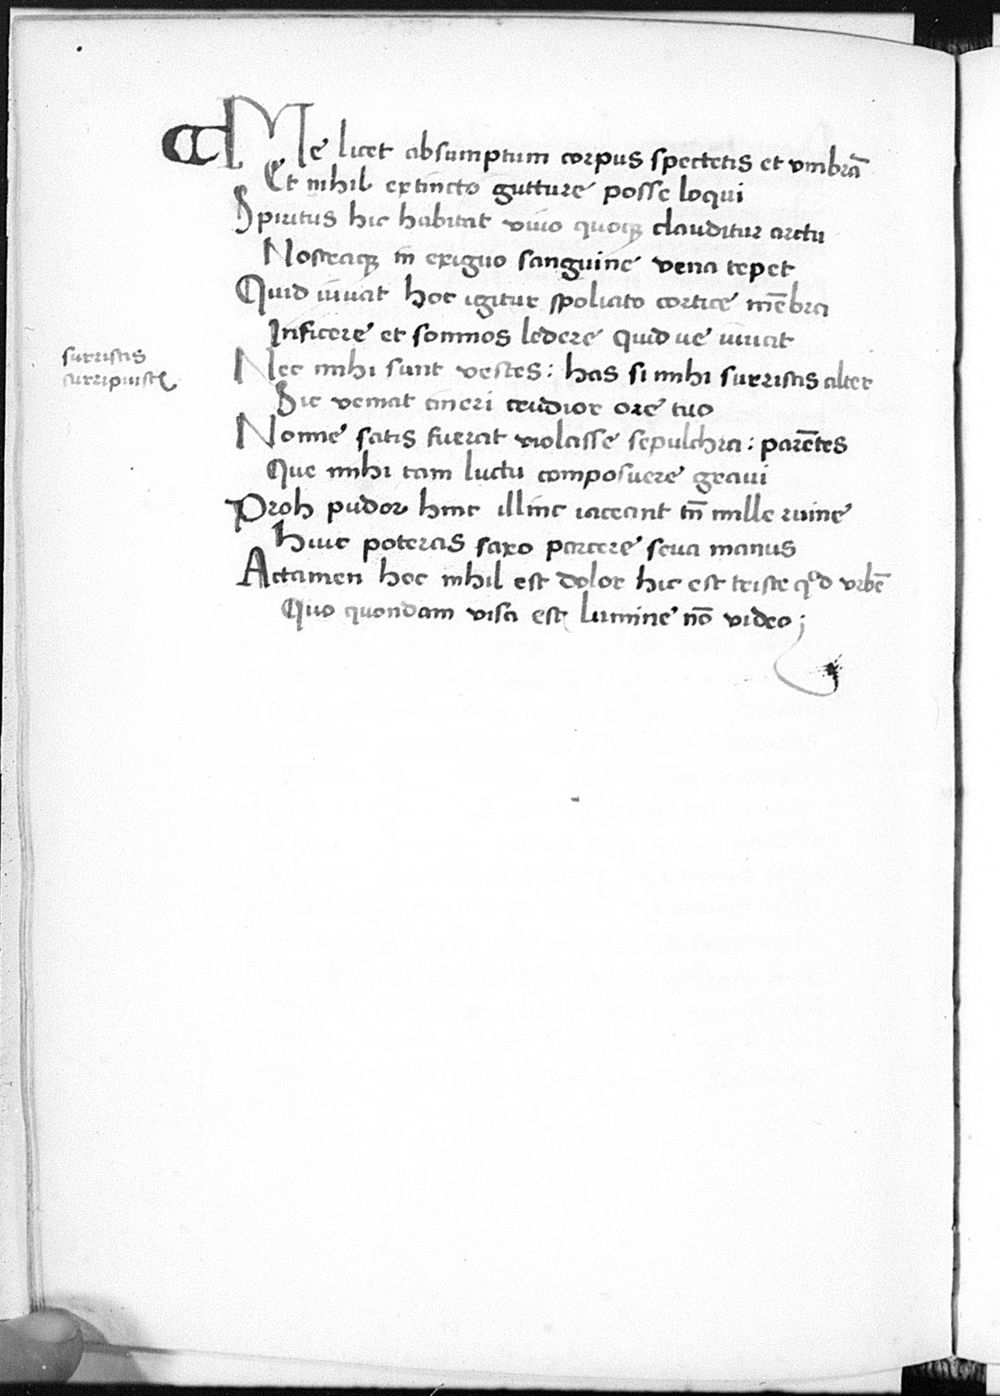 Me licet absumptum corpus spectetis et vmbrā
Et nihil extincto gutture posse loqui
Spiritus hic habitat viuo quoqꝫ clauditur artu
Nostraqꝫ in exiguo sanguine vena tepet
Quid iuuat hoc igitur spoliato cortice mēbra
Inficere et somnos ledere quid ue iuuat
Nec mihi sunt vestes: has si mihi surristis alter
Sic veniat cineri tardior ore tuo
Nonne satis fuerat violasse sepulchra: parētes
Que mihi tam luctu composuere graui
Proh pudor hinc illinc iaceant tn̄ mille ruine
Huic poteras saxo parcere seua manus
Actamen hoc nihil est dolor hic est triste qͦd vrbē
Quo quondam visa est lumine nō video;
surristis
surripuistꝭ